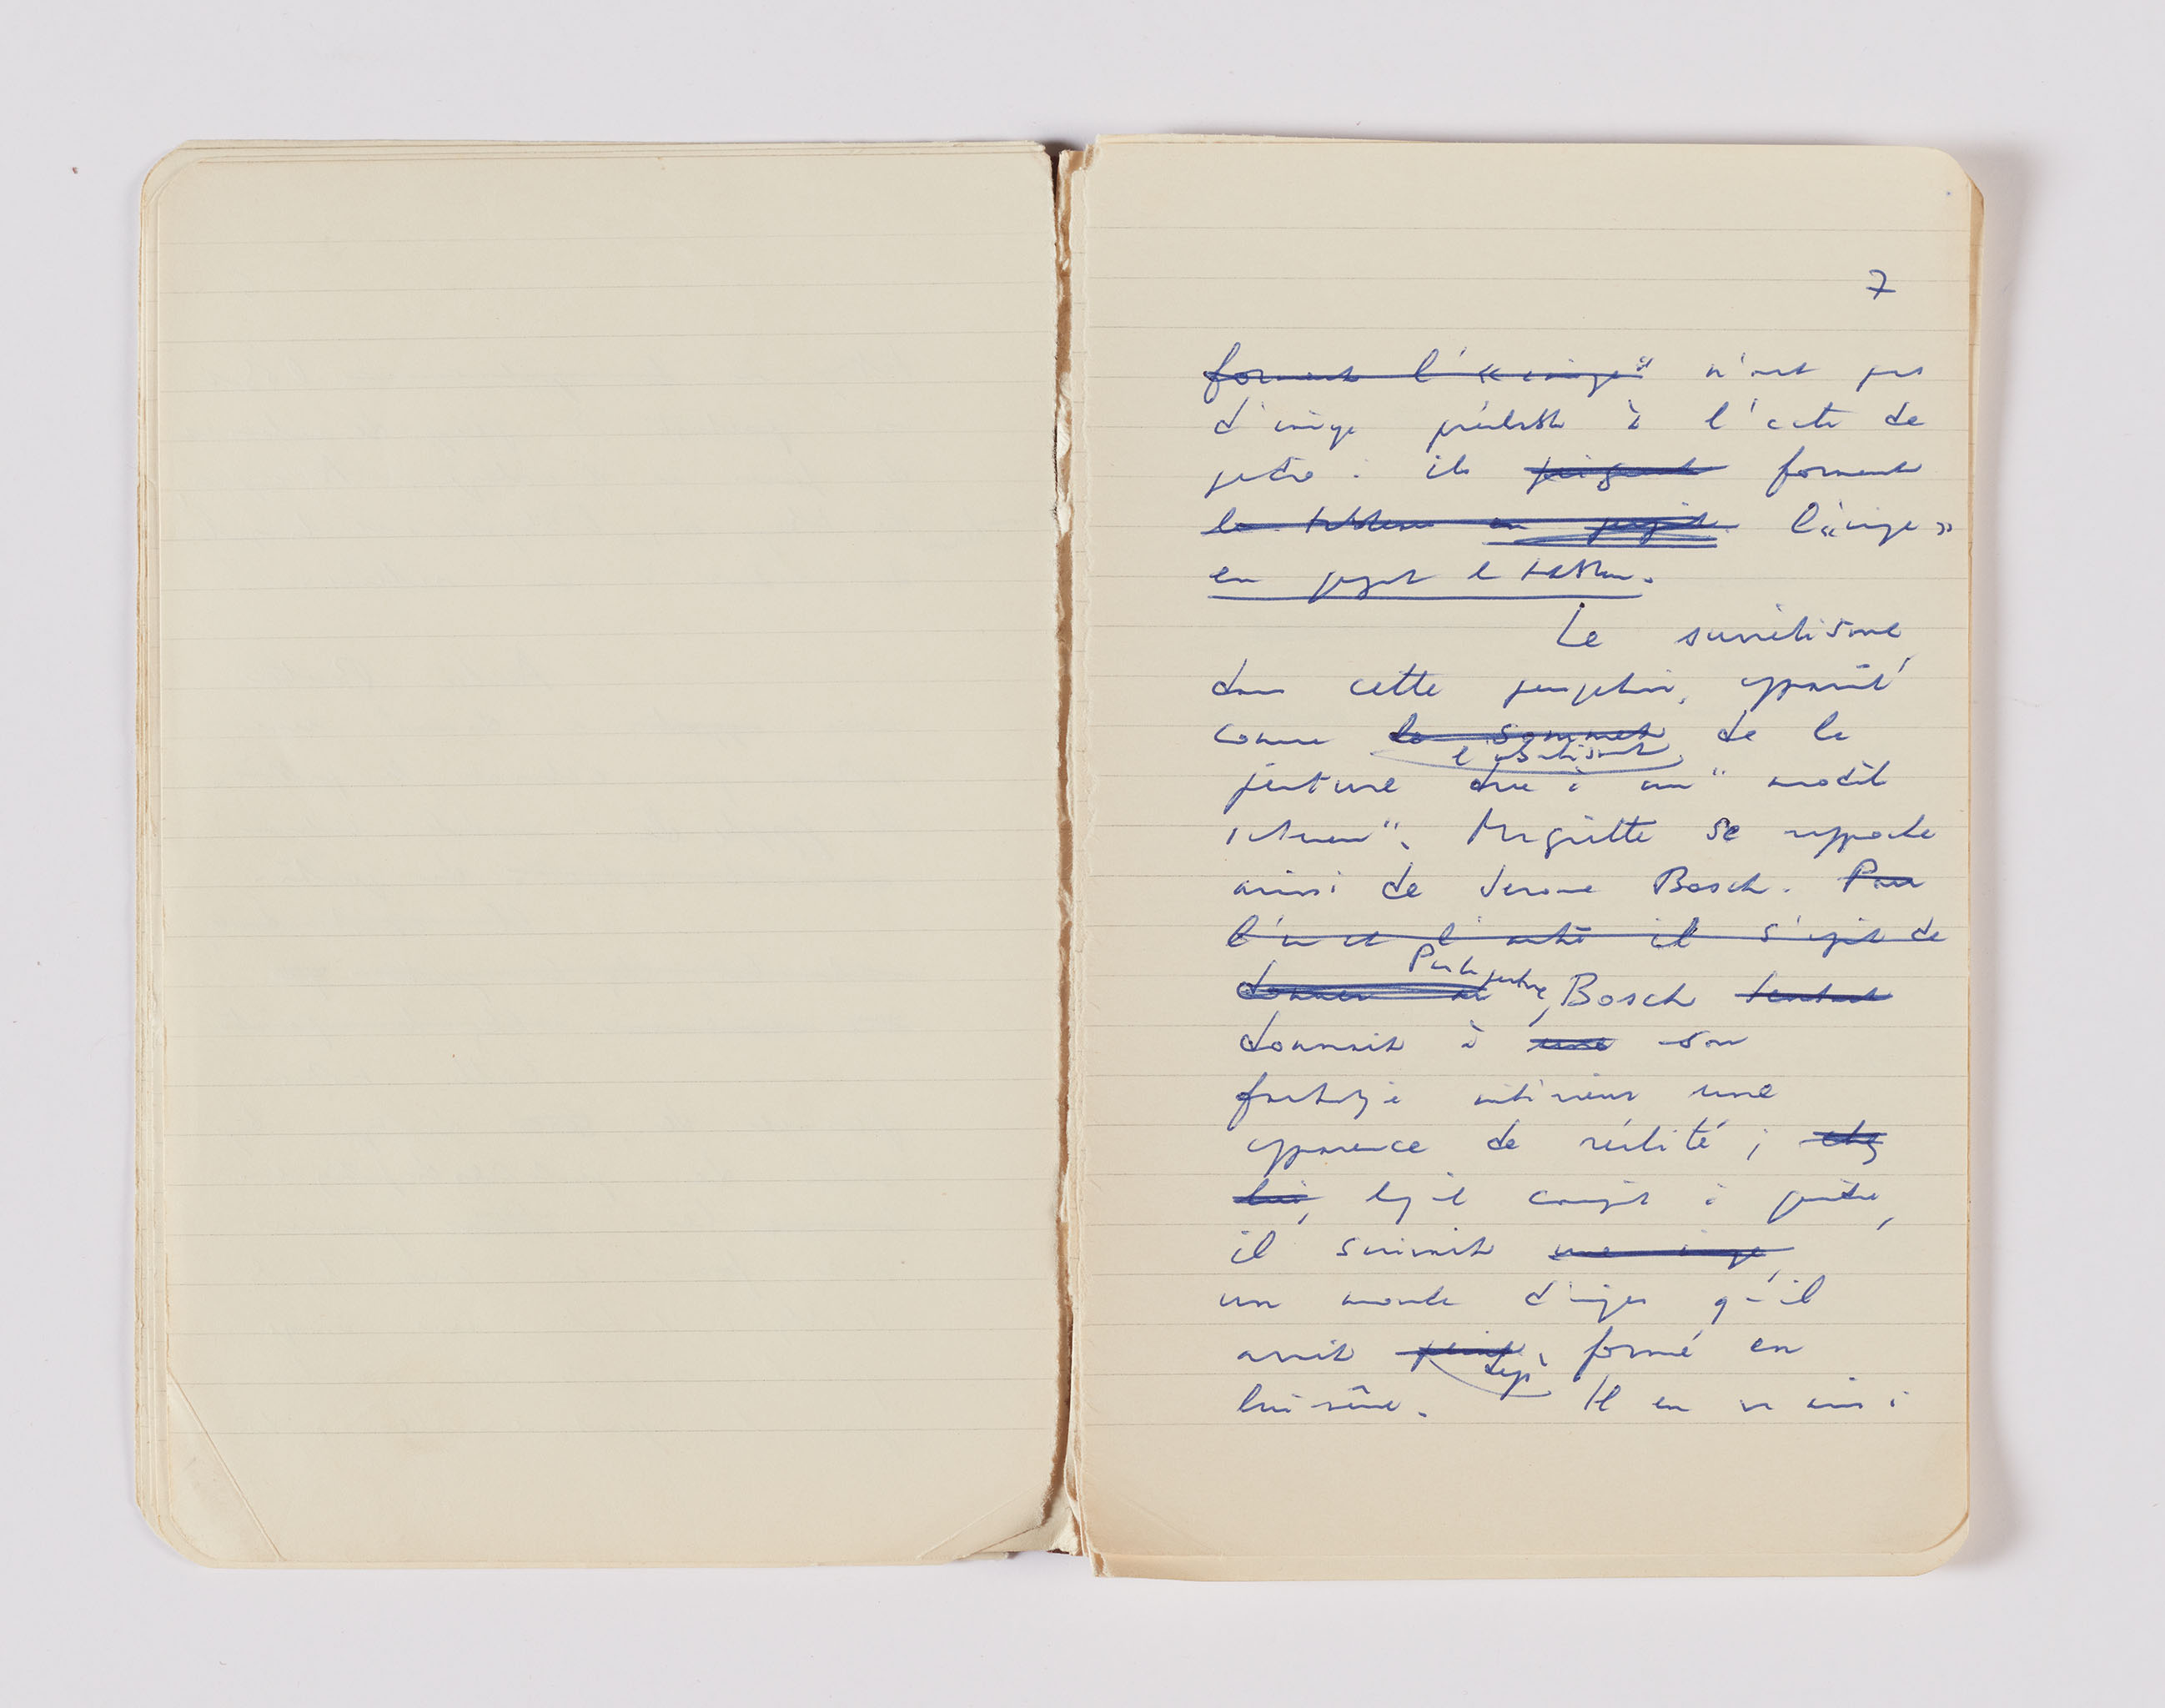 7
formant l'«image» n'ont pas
d'image préalable à l'acte de
peindre : ils peignent forment
le tableau en l'«image»
en peignant le tableau.
Le surréalisme,
dans cette perspective, apparaît
comme le sommet de la
l'aboutissement
peinture due à un "modèle
intérieur". Magritte se rapproche
ainsi de Jerome Bosch. Pour
l'un et l'autre il s'agit de
Par la peinture
donner, Bosch tentait
donnait à une son
fantastique intérieur une
apparence de réalité ; chez
lui, lorsqu'il commençait à peindre,
il suivait une image,
un monde d'images qu'il
avait peint formé en
déjà
lui-même. Il en va ainsi